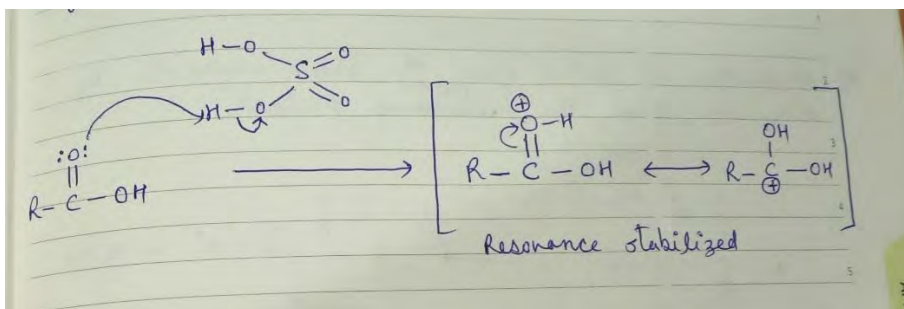 H-O
S=O
H-O
O
:O:
R-C-OH
⊕
O-H
R-C-OH ⟷ R-C-OH
OH
⊕
Resonance stabilized
2
3
4
5